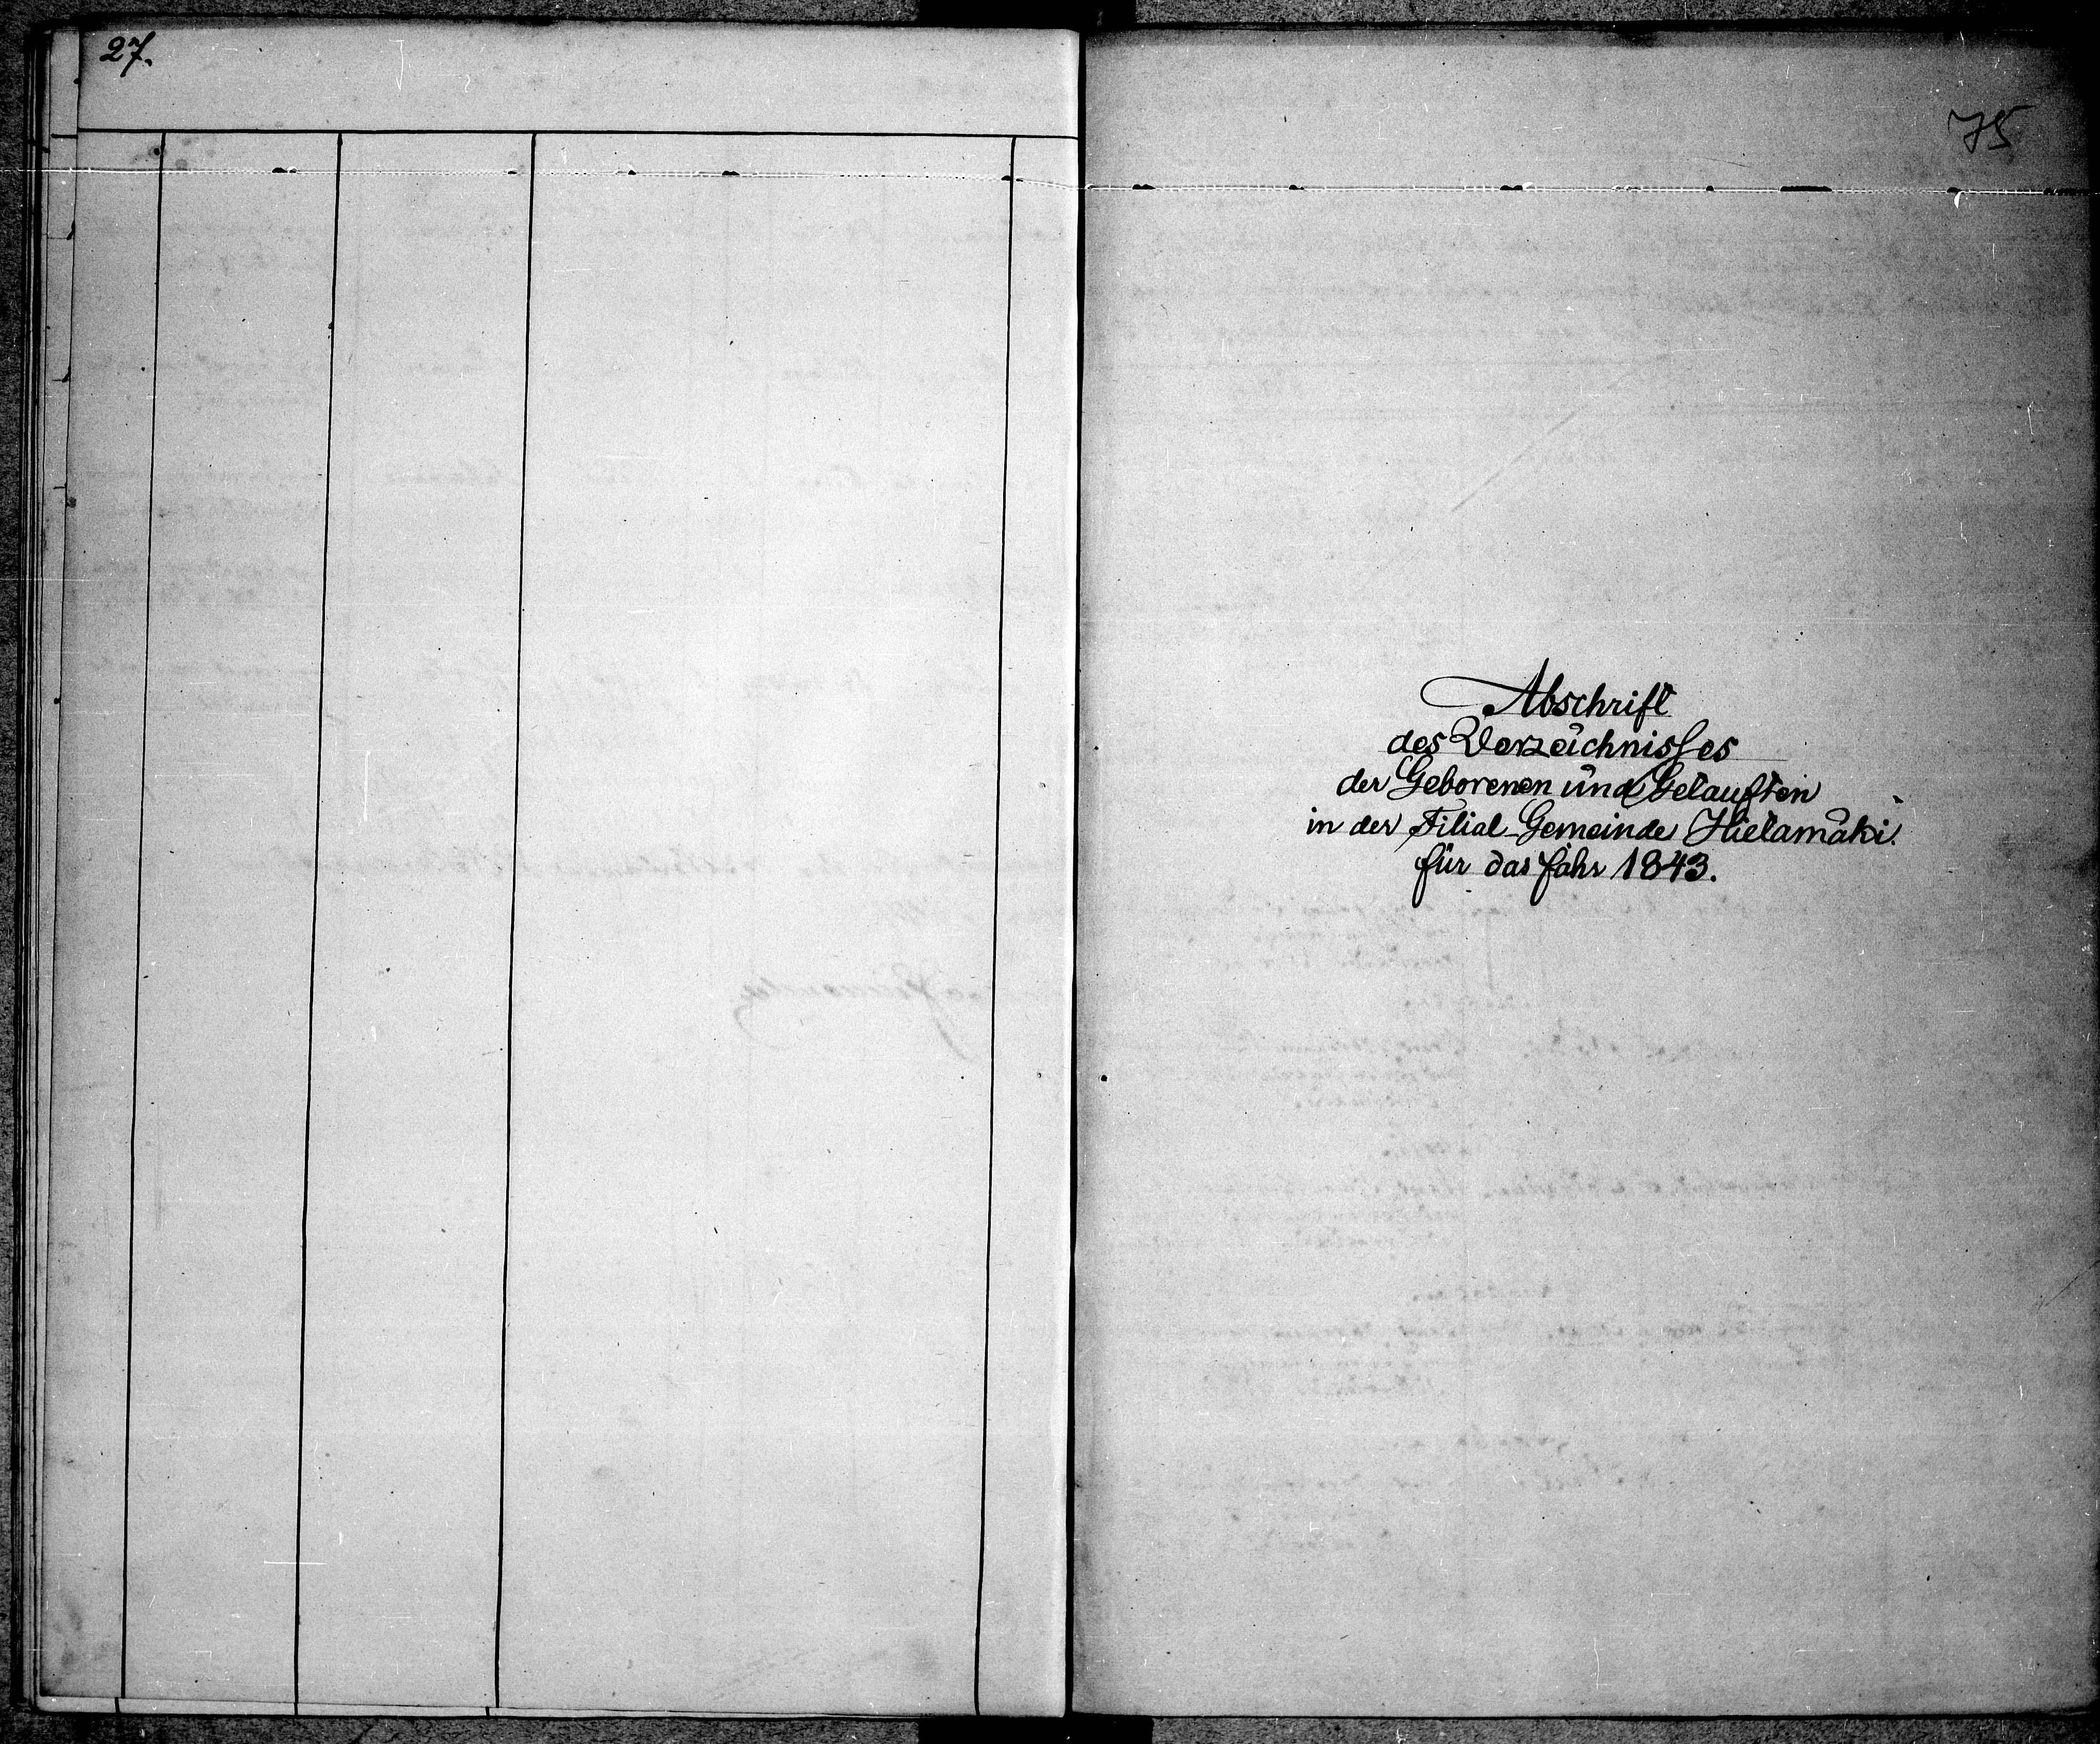 27.
75
Abschrift
des Verzeichnisses
der Geborenen und Getauften
in der Filial-Gemeinde Hietamäki.
für das Jahr 1843.